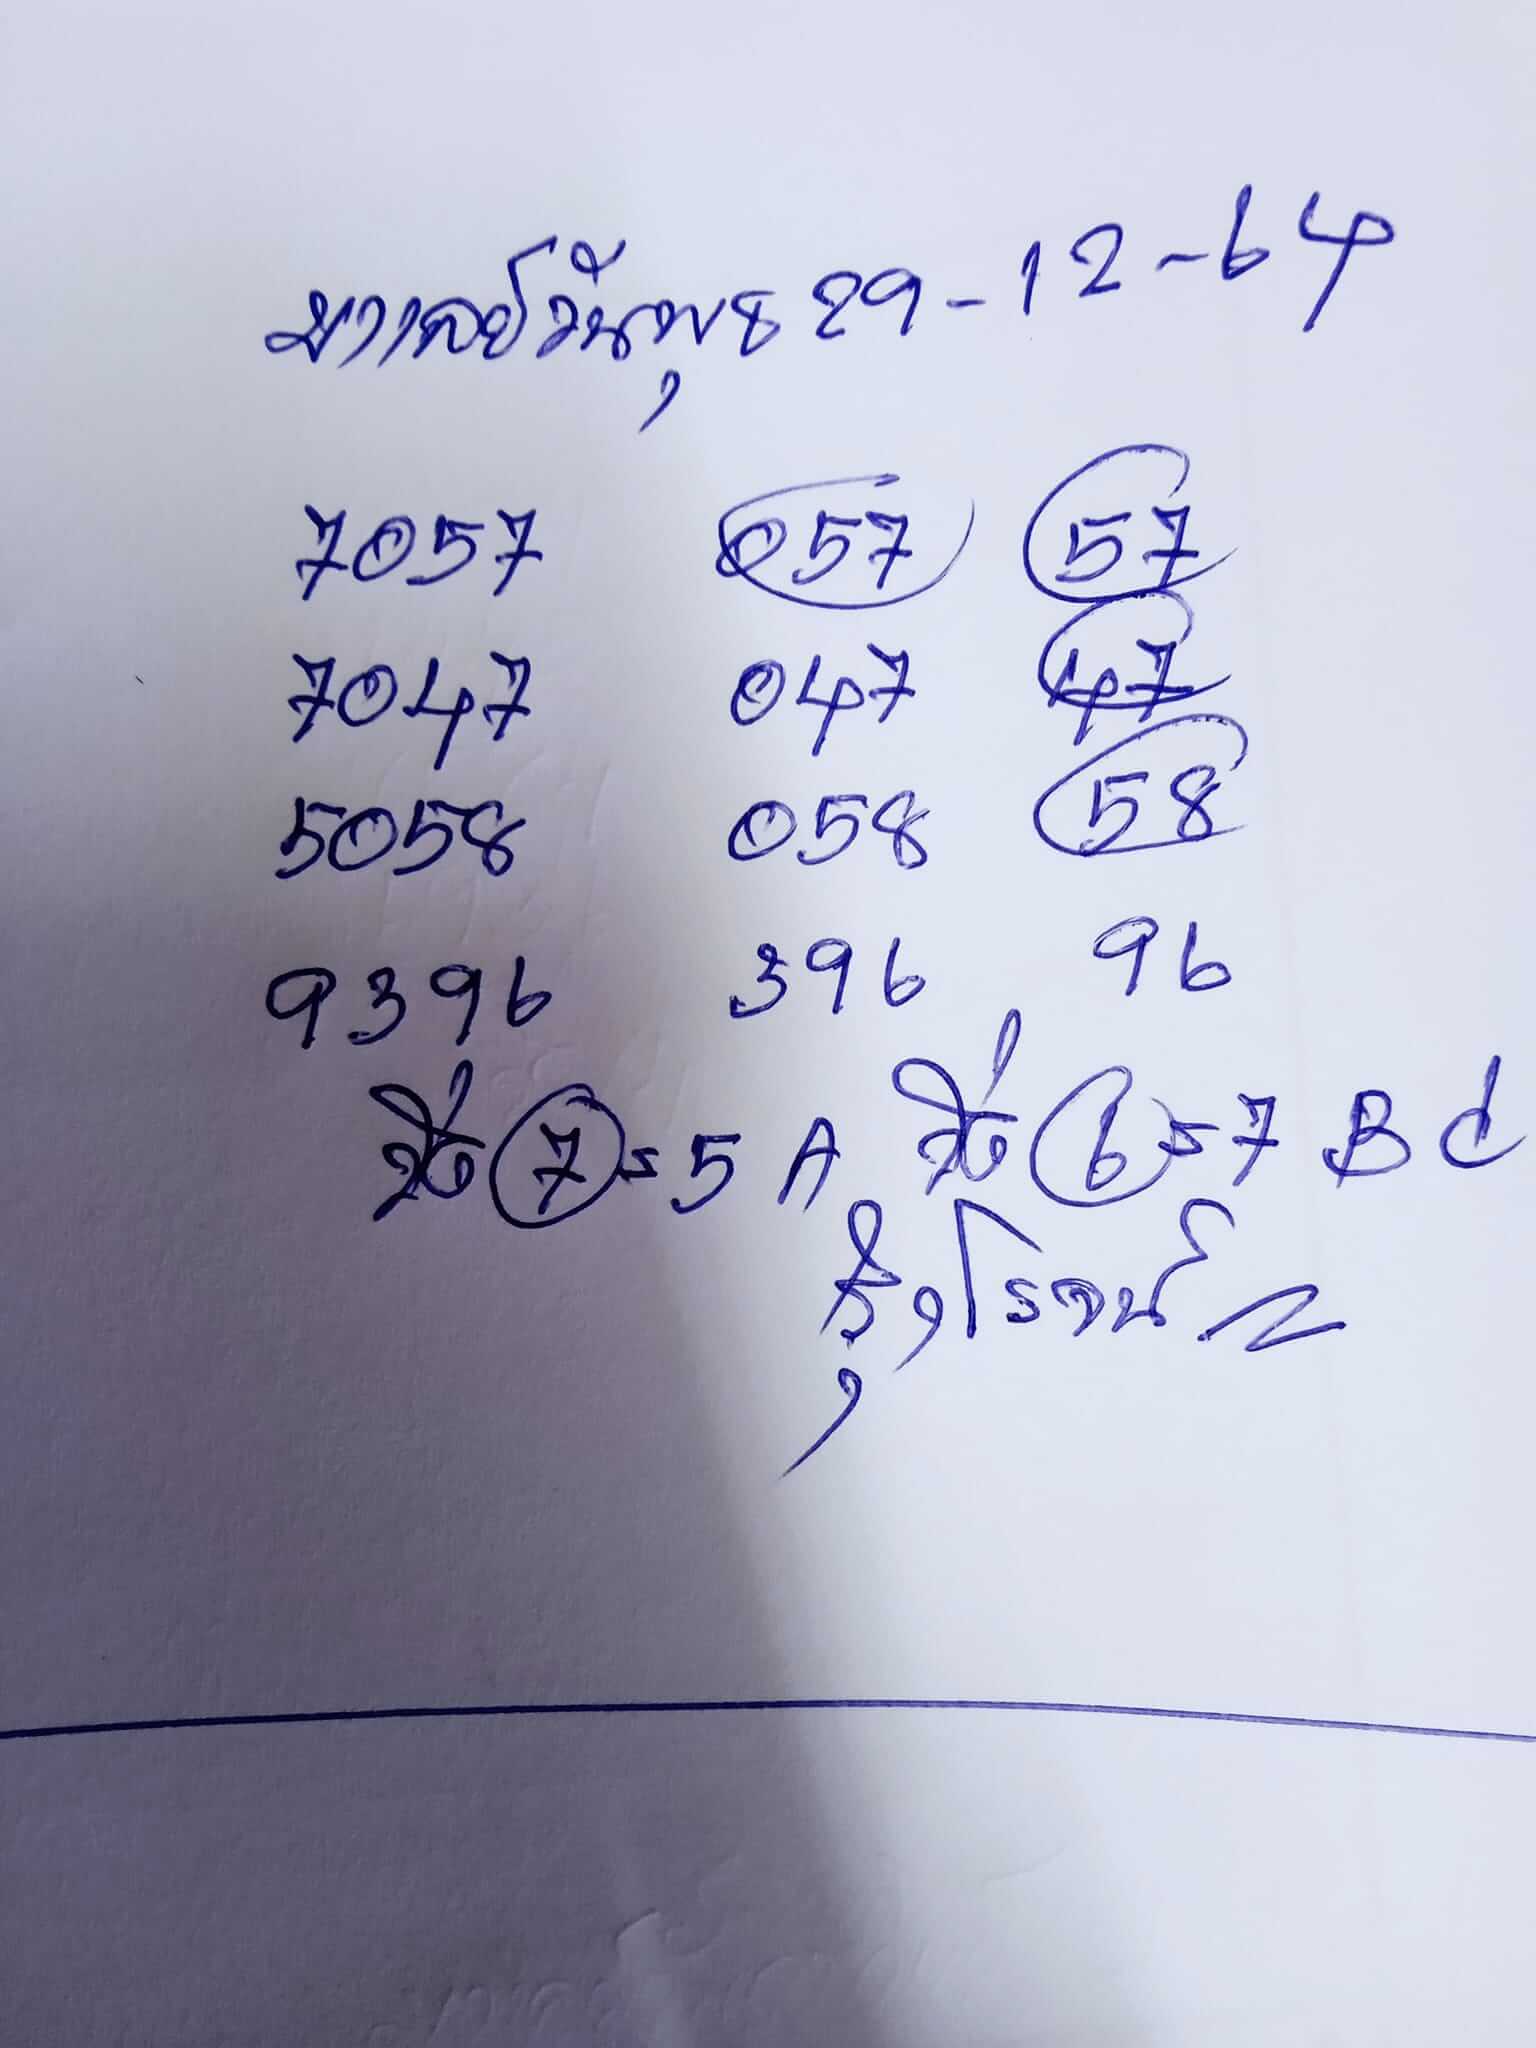 มาเลย์วันพุธ 29-12-64
7057 057 57
7047 047 47
5058 058 58
9396 396 96
7=5 A 6=7 B C
โรจน์